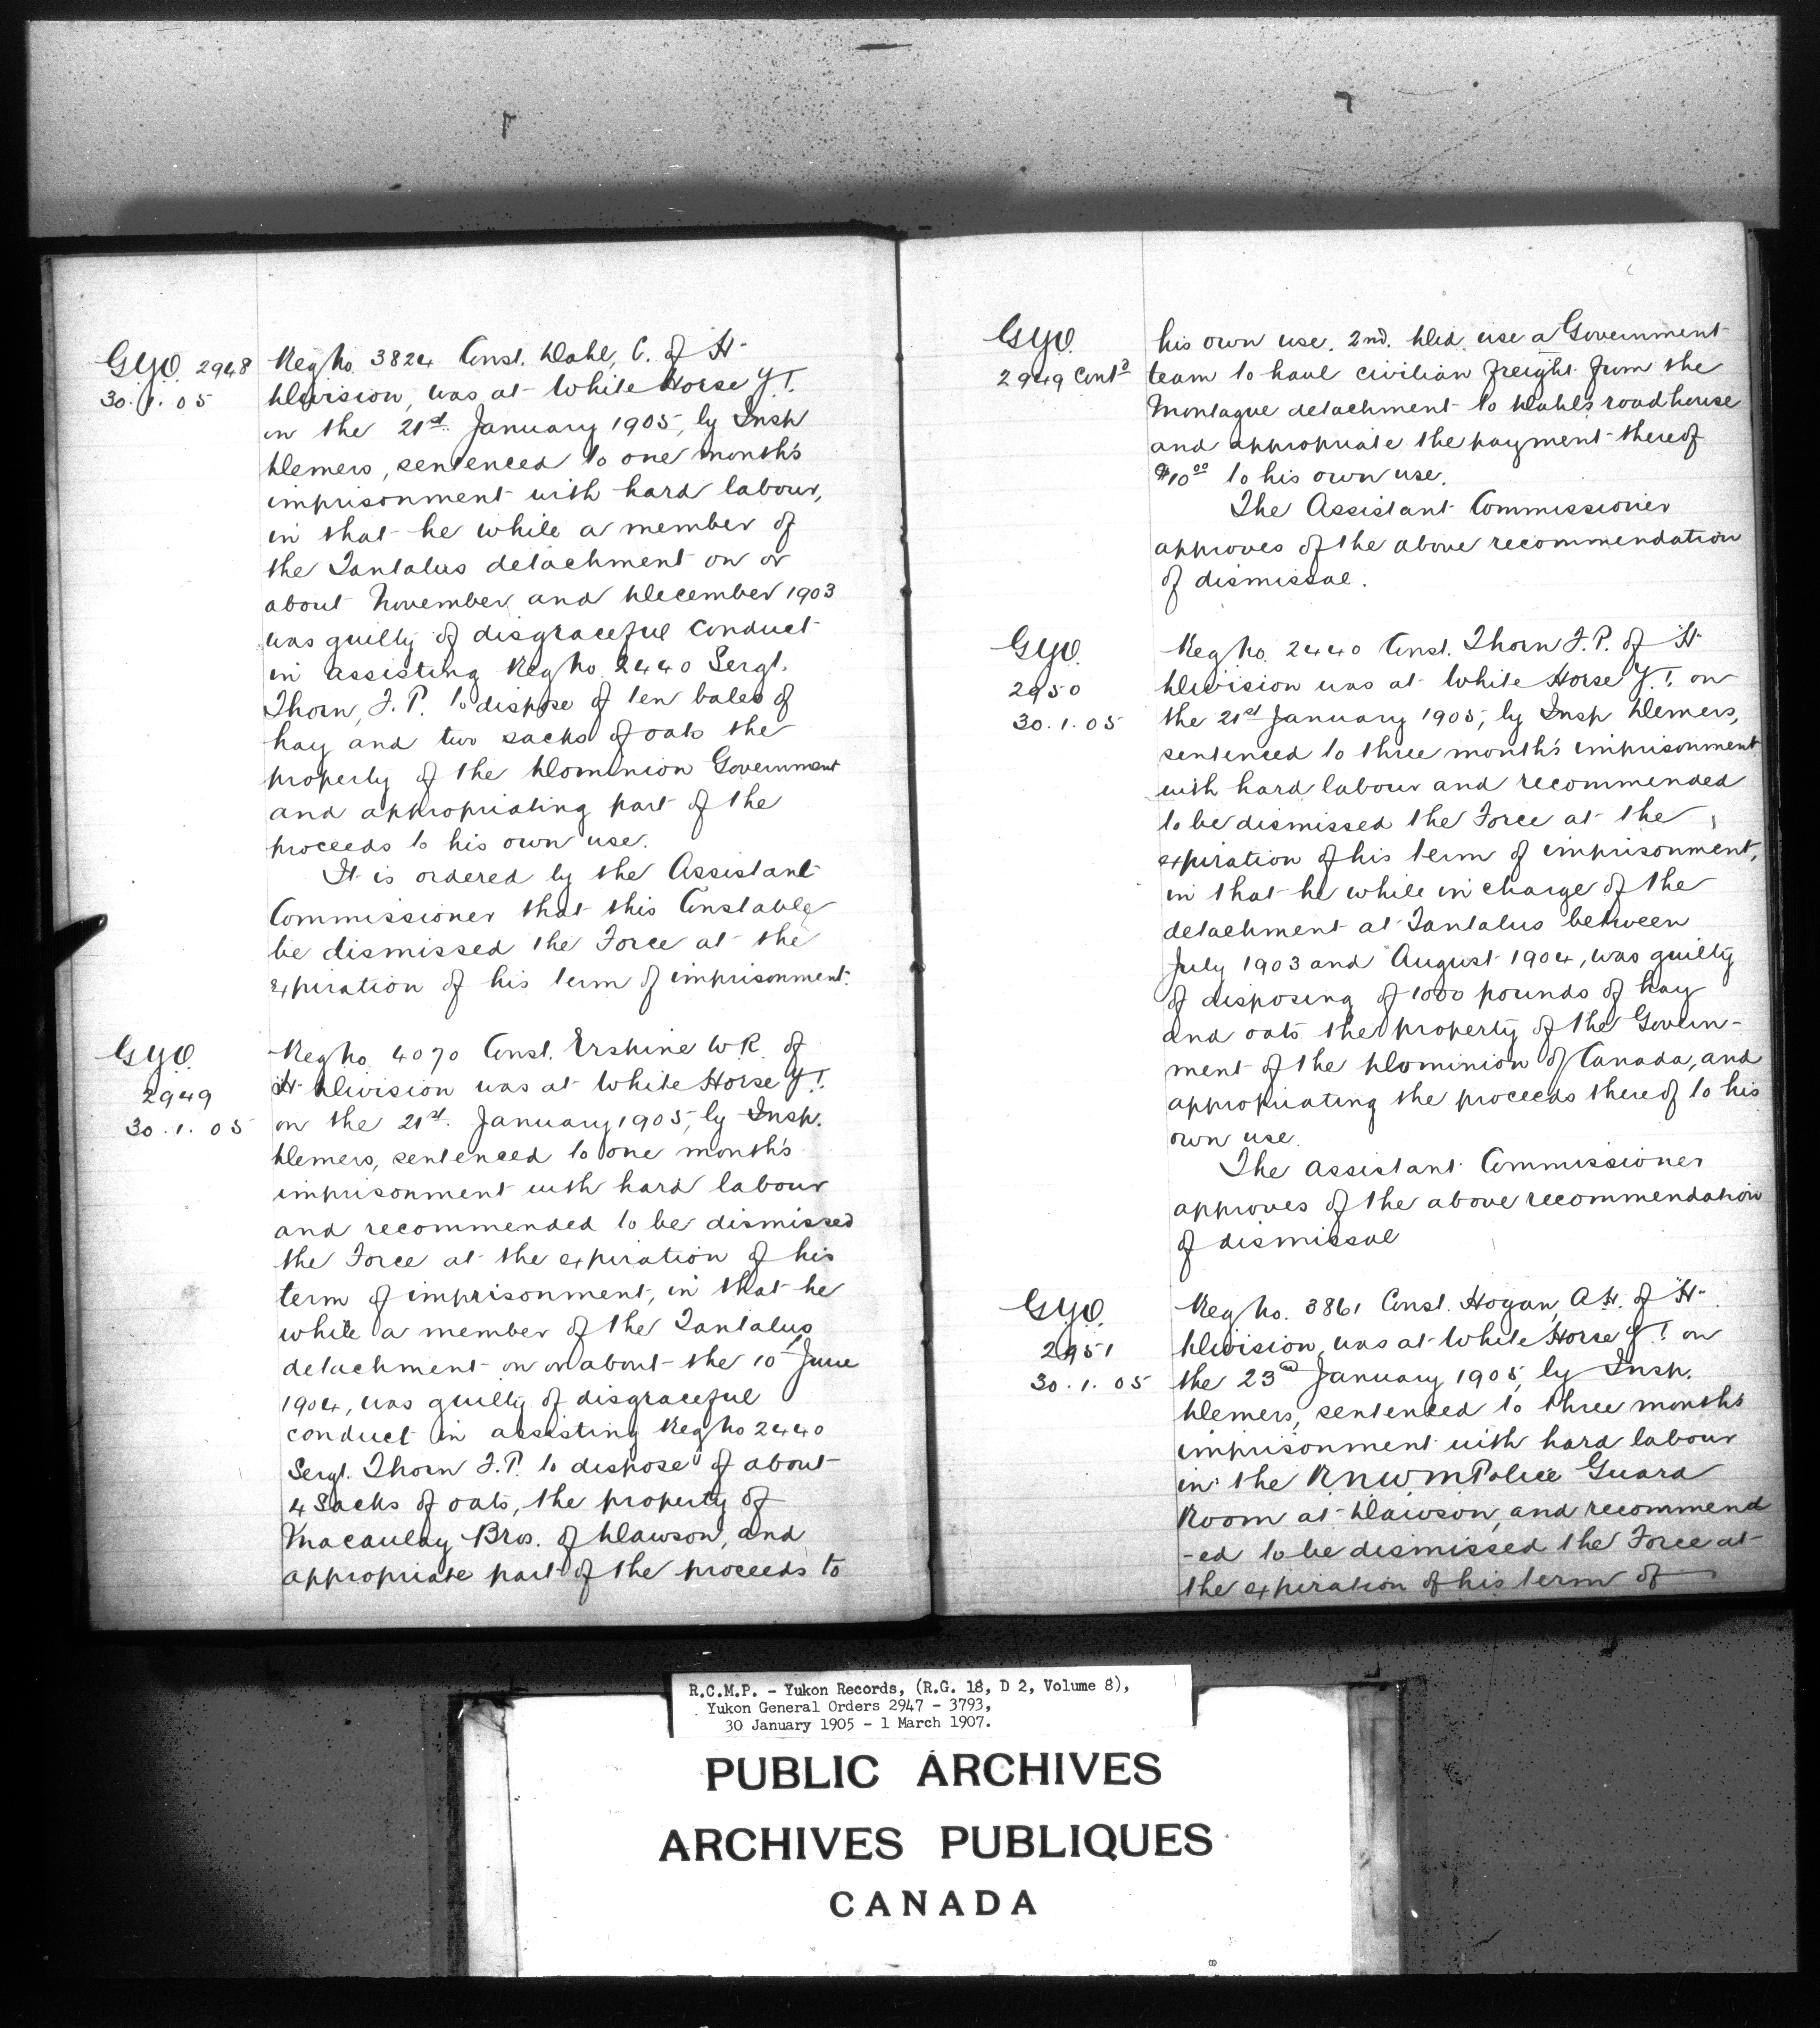 G.Y.O. 2948
30.1.05
Reg No. 3824 Const. Dahl, C. of "H"
Division, was at White Horse Y.T.
on the 21st January 1905, by Insp
Demers, sentenced to one month's
imprisonment with hard labour,
in that he while a member of
the Tantalus detachment on or
about November and December 1903
was guilty of disgraceful conduct
in assisting Reg No. 2440 Sergt.
Thorn, F. P. to dispose of ten bales of
hay and two sacks of oats the
property of the Dominion Government
and appropriating part of the
proceeds to his own use.
It is ordered by the Assistant
Commissioner that this Constable
be dismissed the Force at the
expiration of his term of imprisonment.
G.Y.O.
2949
30.1.05
Reg No. 4070 Const. Erskine W.R. of
"H" Division was at White Horse Y.T.
on the 21st. January 1905, by Insp.
Demers, sentenced to one month's
imprisonment with hard labour
and recommended to be dismissed
the Force at the expiration of his
term of imprisonment, in that he
while a member of the Tantalus
detachment on or about the 10 June
1904, was guilty of disgraceful
conduct in assisting Reg No 2440
Sergt. Thorn F.P. to dispose of about
4 Sacks of oats, the property of
Macaulay Bros. of Dawson, and
appropriate part of the proceeds to
G.Y.O.
2949 Contd
his own use. 2nd. Did use a Government
team to haul civilian freight from the
Montague detachment to Dahl's roadhouse
and appropriate the payment thereof
$10.00 to his own use.
The Assistant Commissioner
approves of the above recommendation
of dismissal.
G.Y.O.
2950
30.1.05
Reg No. 2440 Const. Thorn F.P. of "H"
Division was at White Horse Y.T. on
the 21st January 1905, by Insp Demers,
sentenced to three month's imprisonment
with hard labour and recommended
to be dismissed the Force at the
expiration of his term of imprisonment,
in that he while in charge of the
detachment at Tantalus between
July 1903 and August 1904, was guilty
of disposing of 1000 pounds of hay
and oats the property of the Govern-
ment of the Dominion of Canada, and
appropriating the proceeds thereof to his
own use.
The Assistant Commissioner
approves of the above recommendation
of dismissal
G.Y.O.
2951
30.1.05
Reg No. 3861 Const. Hogan, A.H. of "H"
Division, was at White Horse Y.T. on
the 23rd January 1905, by Insp.
Demers, sentenced to three months
imprisonment with hard labour
in the R.N.W.M Police Guard
Room at Dawson, and recommend
-ed to be dismissed the Force at
the expiration of his term of
R.C.M.P. - Yukon Records, (R.G. 18, D 2, Volume 8),
Yukon General Orders 2947 - 3793,
30 January 1905 - 1 March 1907.
PUBLIC ARCHIVES
ARCHIVES PUBLIQUES
CANADA